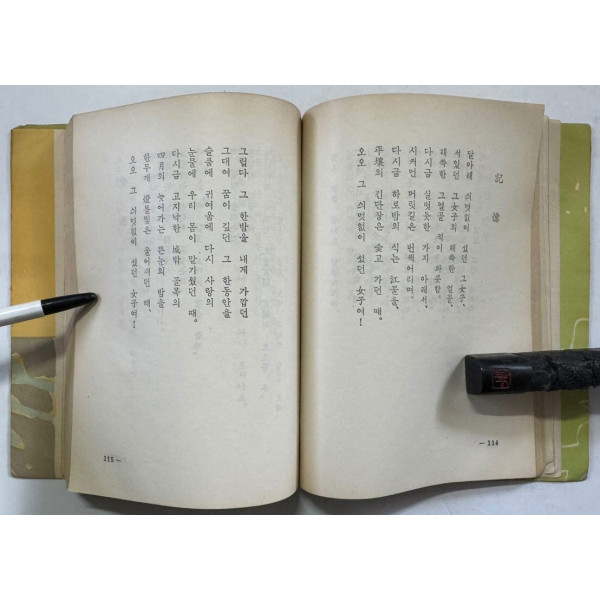 記憶
달아래 싀멋없이 섰던 그女子,
서있던 그女子의 해쓱한 얼굴,
해쓱한 그얼굴 적이 파릇함.
다시금 실벗듯한 가지 아래서,
시커먼 머릿길은 번쩍어리며,
다시금 하로밤의 식는 江물을,
平壤의 긴단장은 슷고 가던 때.
오오 그 싀멋없이 섰던 女子여!
— 114
그립다 그 한밤을 내게 가깝던
그대여 꿈이 깊던 그 한동안을
슬픔에 귀여움에 다시 사랑의
눈물에 우리 몸이 맡기웠던 때.
다시금 고지낙한 城밖 골목의
四月의 늦어가는 뜬눈의 밤을
한두개 燈불빛은 울어새던 때.
오오 그 싀멋없이 섰던 女子여!
115 —